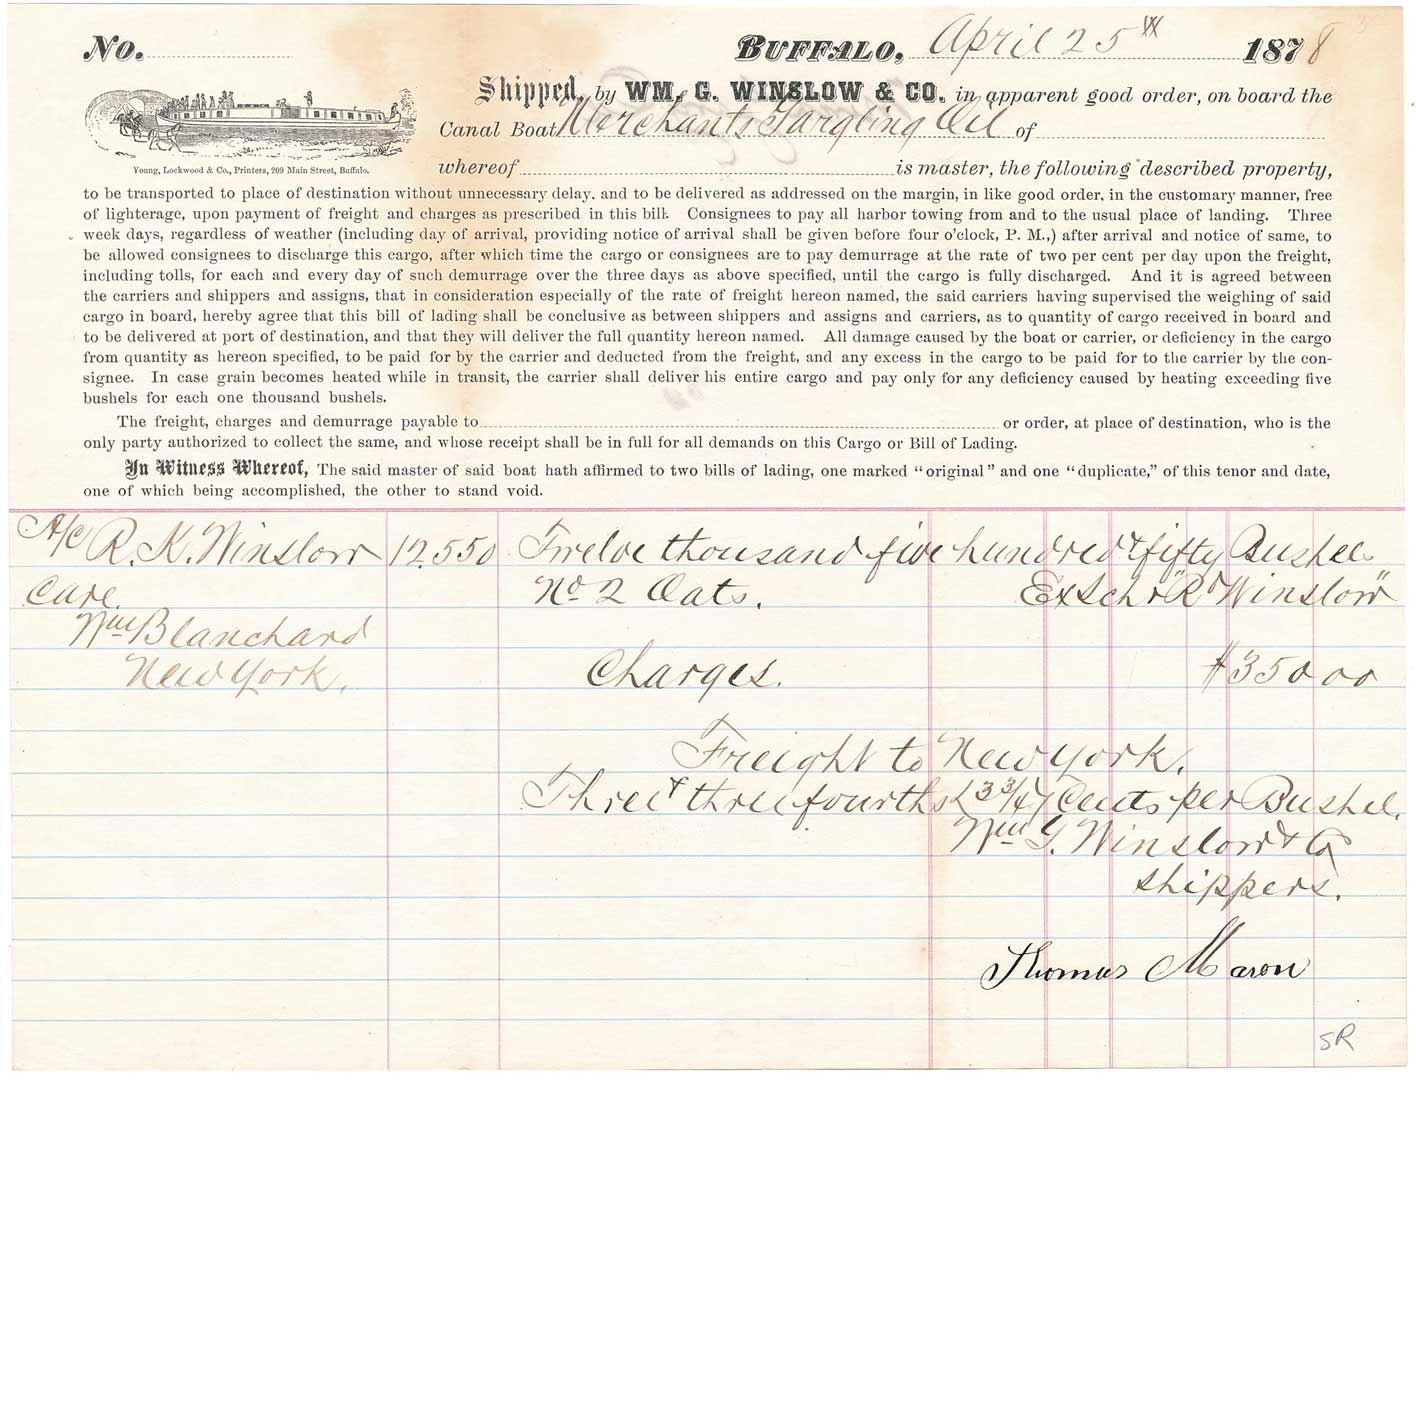 No. BUFFALO, April 25th 1878
Shipped, by WM. G. WINSLOW & CO. in apparent good order, on board the
Canal Boat Merchants Gargling Oil of
Young, Lockwood & Co., Printers, 209 Main Street, Buffalo.
whereof is master, the following described property,
to be transported to place of destination without unnecessary delay, and to be delivered as addressed on the margin, in like good order, in the customary manner, free
of lighterage, upon payment of freight and charges as prescribed in this bill. Consignees to pay all harbor towing from and to the usual place of landing. Three
week days, regardless of weather (including day of arrival, providing notice of arrival shall be given before four o'clock, P. M.,) after arrival and notice of same, to
be allowed consignees to discharge this cargo, after which time the cargo or consignees are to pay demurrage at the rate of two per cent per day upon the freight,
including tolls, for each and every day of such demurrage over the three days as above specified, until the cargo is fully discharged. And it is agreed between
the carriers and shippers and assigns, that in consideration especially of the rate of freight hereon named, the said carriers having supervised the weighing of said
cargo in board, hereby agree that this bill of lading shall be conclusive as between shippers and assigns and carriers, as to quantity of cargo received in board and
to be delivered at port of destination, and that they will deliver the full quantity hereon named. All damage caused by the boat or carrier, or deficiency in the cargo
from quantity as hereon specified, to be paid for by the carrier and deducted from the freight, and any excess in the cargo to be paid for to the carrier by the con-
signee. In case grain becomes heated while in transit, the carrier shall deliver his entire cargo and pay only for any deficiency caused by heating exceeding five
bushels for each one thousand bushels.
The freight, charges and demurrage payable to or order, at place of destination, who is the
only party authorized to collect the same, and whose receipt shall be in full for all demands on this Cargo or Bill of Lading.
In Witness Whereof, The said master of said boat hath affirmed to two bills of lading, one marked "original" and one "duplicate," of this tenor and date,
one of which being accomplished, the other to stand void.
A/C R. K. Winslow 12,550 Twelve thousand five hundred & fifty Bushels
Care No 2 Oats. Ex Schr "Rd Winslow"
Wm Blanchard
New York. Charges. $350 00
Freight to New York.
Three & three fourths (3 3/4) Cents per Bushel.
Wm G. Winslow & Co
Shippers.
Thomas Maron
SR